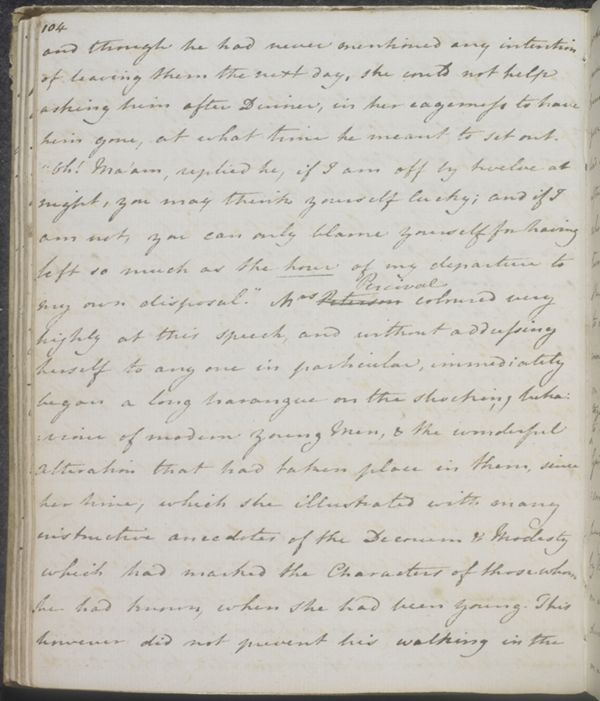 104
and though he had never mentioned any intention
of leaving them the next day, she could not help
asking him after Dinner, in her eagerness to have
him gone, at what time he meant to set out.
"Oh! Ma'am, replied he, if I am off by twelve at
night, you may think yourself lucky; and if I
am not, you can only blame yourself for having
left so much as the hour of my departure to
my own disposal." Mrs Peterson Percival coloured very
highly at this speech, and without addressing
herself to any one in particular, immediately
began a long harangue on the shocking beha:
:viour of modern Young Men, & the wonderful
Alteration that had taken place in them, since
her time, which she illustrated with many
instructive anecdotes of the Decorum & Modesty
which had marked the Characters of those whom
she had known, when she had been young. This
however did not prevent his walking in the